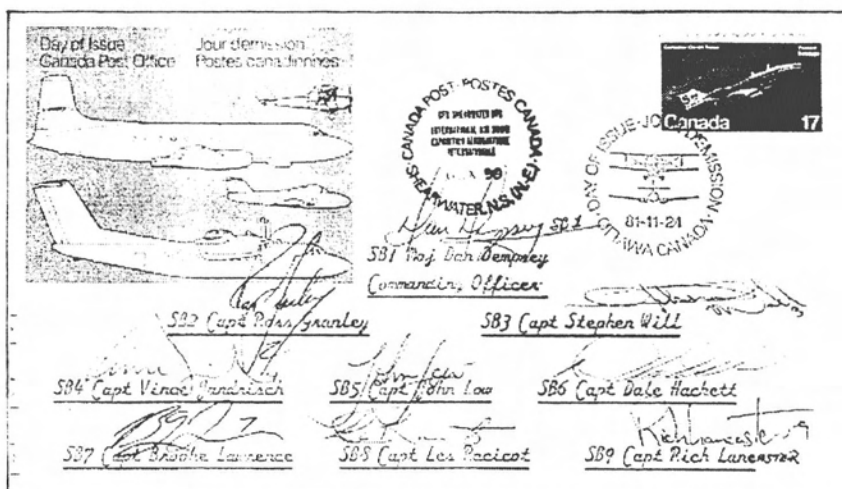 Day of Issue
Canada Post Office
Jour d'émission
Postes canadiennes
Canada
17
CANADA POST·POSTES CANADA
INTERNATIONAL AIR SHOW
INTERNATIONALE
90
SHEARWATER, N.S. (N.-E.)
DAY OF ISSUE·JOUR D'EMISSION
81-11-24
OTTAWA CANADA
Dan Dempsey SB1
SB1 Maj Dan Dempsey
Commanding Officer
SB2 Capt Ross Granley
SB3 Capt Stephen Will
SB4 Capt Vince Jandrisch
SB5 Capt John Low
SB6 Capt Dale Hackett
Rich Lancaster
SB7 Capt Brooke Lawrence
SB8 Capt Les Racicot
SB9 Capt Rich LANCASTER